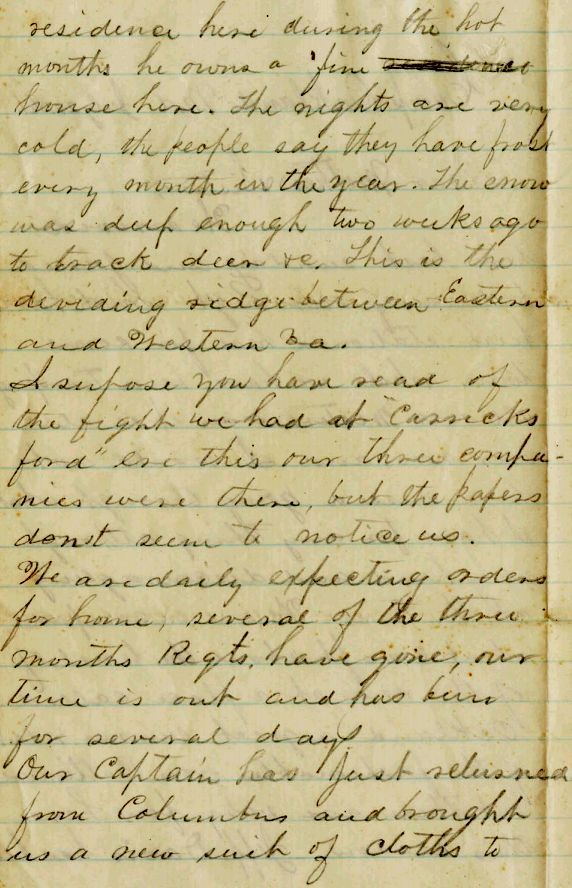 residence here during the hot
months he owns a fine
house here. The nights are very
cold, the people say they have frost
every month in the year. The snow
was deep enough two weeks ago
to track deer &c. This is the
deviding ridge between Eastern
and Western Va.
I supose you have read of
the fight we had at "Carricks
ford" ere this our three compa-
nies were there, but the papers
donst seem to notice us.
We are daily expecting orders
for home, several of the three
months Regts. have gone, our
time is out and has been
for several days
Our Captain has just returned
from Columbus and brought
us a new suit of cloths to